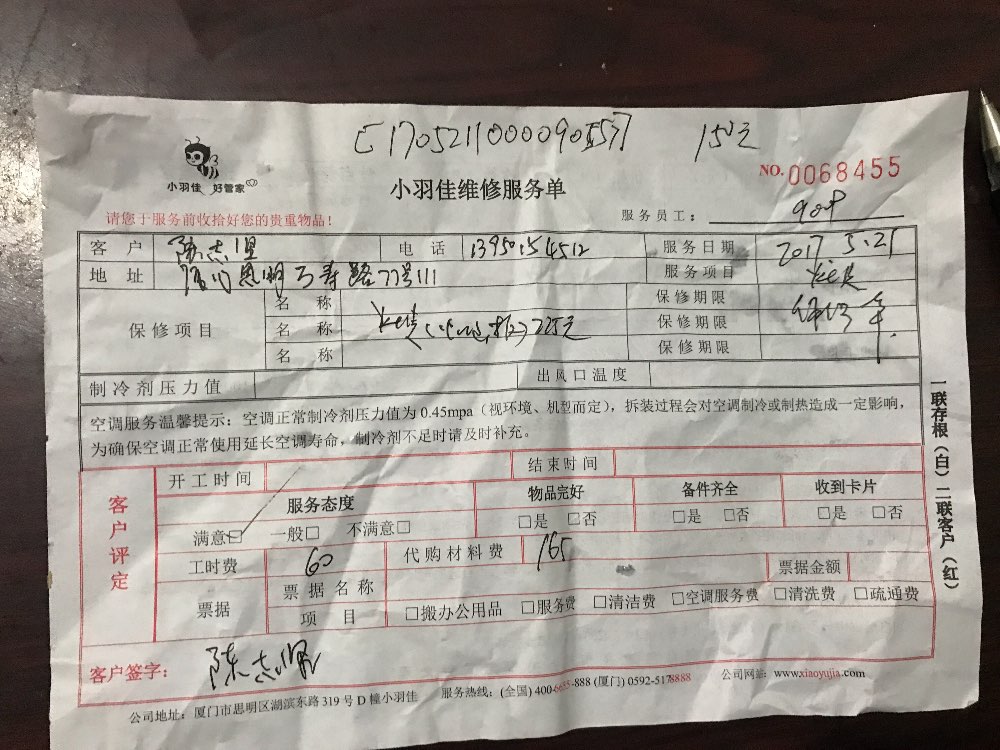 E170521100009055757 150元
小羽佳 好管家
NO.0068455
小羽佳维修服务单
请您于服务前收拾好您的贵重物品！
服务员工： 908
客 户 陈志坚 电 话 13950154512 服务日期 2017 5.21
地 址 厦门思明万寿路77号111 服务项目
保修项目 名 称 保修期限
名 称 225元 保修期限
名 称 保修期限
制冷剂压力值 出风口温度
空调服务温馨提示：空调正常制冷剂压力值为 0.45mpa（视环境、机型而定），拆装过程会对空调制冷或制热造成一定影响，
为确保空调正常使用延长空调寿命，制冷剂不足时请及时补充。
一联存根（白）二联客户（红）
客户评定
开工时间 结束时间
服务态度 物品完好 备件齐全 收到卡片
满意□ 一般□ 不满意□ □是 □否 □是 □否 □是 □否
工时费 60 代购材料费 165
票据 票据名称 票据金额
项 目 □搬办公用品 □服务费 □清洁费 □空调服务费 □清洗费 □疏通费
客户签字： 陈志坚
公司地址：厦门市思明区湖滨东路 319 号 D 幢小羽佳 服务热线：(全国) 400-6655-888 (厦门) 0592-5178888 公司网站：www.xiaoyujia.com